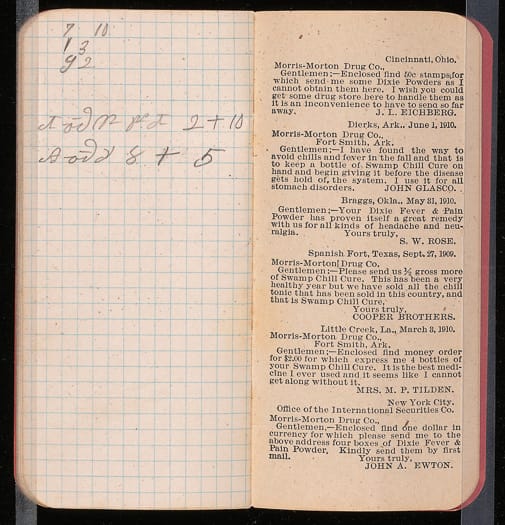 7 10
1 3
9 2
2 + 10
8 + 5
Cincinnati, Ohio.
Morris-Morton Drug Co.,
Gentlemen;—Enclosed find 50c stamps,for
which send me some Dixie Powders as I
cannot obtain them here. I wish you could
get some drug store here to handle them as
it is an inconvenience to have to send so far
away. J. L. EICHBERG.
Dierks, Ark., June 1, 1910.
Morris-Morton Drug Co.,
Fort Smith, Ark.
Gentlemen;—I have found the way to
avoid chills and fever in the fall and that is
to keep a bottle of Swamp Chill Cure on
hand and begin giving it before the disease
gets hold of the system. I use it for all
stomach disorders. JOHN GLASCO.
Braggs, Okla., May 31, 1910.
Gentlemen;—Your Dixie Fever & Pain
Powder has proven itself a great remedy
with us for all kinds of headache and neu-
ralgia. Yours truly,
S. W. ROSE.
Spanish Fort, Texas, Sept. 27, 1909.
Morris-Morton Drug Co.
Gentlemen;—Please send us ½ gross more
of Swamp Chill Cure. This has been a very
healthy year but we have sold all the chill
tonic that has been sold in this country, and
that is Swamp Chill Cure.
Yours truly,
COOPER BROTHERS.
Little Creek, La., March 8, 1910.
Morris-Morton Drug Co.,
Fort Smith, Ark.
Gentlemen;—Enclosed find money order
for $2.00 for which express me 4 bottles of
your Swamp Chill Cure. It is the best medi-
cine I ever used and it seems like I cannot
get along without it.
MRS. M. P. TILDEN.
New York City.
Office of the International Securities Co.
Morris-Morton Drug Co.,
Gentlemen,—Enclosed find one dollar in
currency for which please send me to the
above address four boxes of Dixie Fever &
Pain Powder, Kindly send them by first
mail. Yours truly,
JOHN A. EWTON.